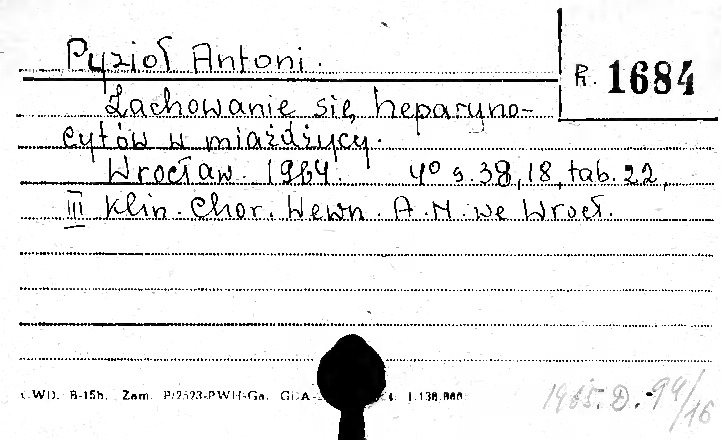 Pyzioł Antoni.
R. 1684
Zachowanie się heparyno-
cytów w miażdżycy.
Wrocław. 1964. 4° s. 38, 18, tab. 22,
III Klin. Chor. Wewn. A. M. we Wrocł.
CWD. B-15b. Zam. P/2523-PWH-Ga. GDA- 1.130.000
1965. D. 94/16